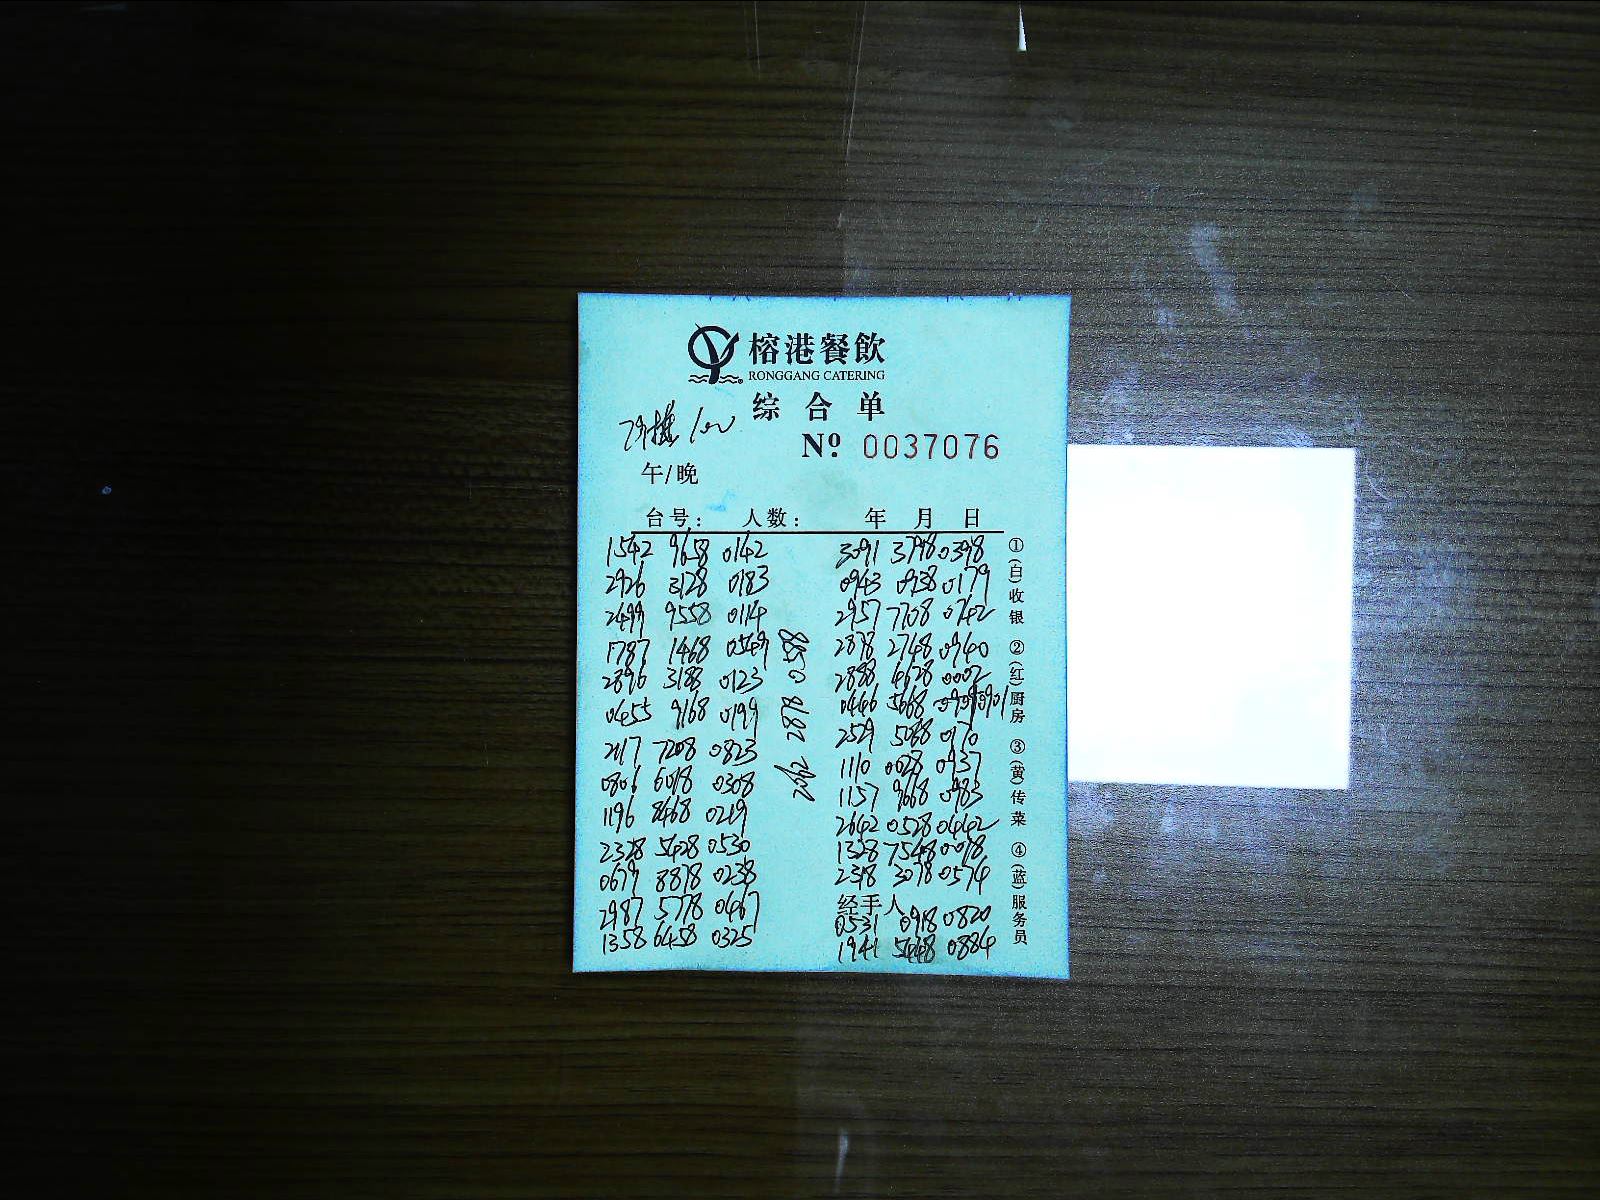 榕港餐飲
RONGGANG CATERING
综合单
100
Nº 0037076
午/晚
台号： 人数： 年 月 日
1542 9658 0142
2926 3128 0183
2499 9558 0114
1787 1468 0549
2896 3188 0123
0455 9168 0199
2117 7208 0823
0806 6018 0308
1196 8468 0219
2328 5428 0530
0679 8878 0238
2987 5778 0467
1358 6458 0325
2878
3091 3798 0398
0943 0938 0179
2957 7708 0742
2878 2748 0940
2888 4628 0002
0446 5668 0901
2529 5088 0170
1110 0028 0937
1157 9668 0983
2642 0528 0442
1328 7548 0018
2318 3078 0574
经手人
0531 0918 0820
1941 5448 0884
①(白)收银 ②(红)厨房 ③(黄)传菜 ④(蓝)服务员